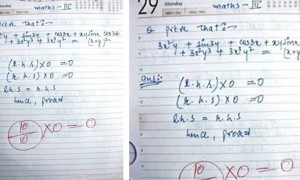 maths - III
prove that:-
3x²y + sin3y + cos3x + xy sinx cos3x
+ 3x²y³ + 3x²y² =
(l.h.s) x 0 = 0
(r.h.s) x 0 = 0
l.h.s = r.h.s
hence, proved
10/10 x 0 = 0
29
Monday
maths - III
Q prove that:-
3x²y + sin3y + cos3x + xy sinx
+ 3x²y³ + 3x²y² =
Ans:-
(l.h.s) x 0 = 0
(r.h.s) x 0 = 0
l.h.s = r.h.s
hence, proved
10 x 0 = 0